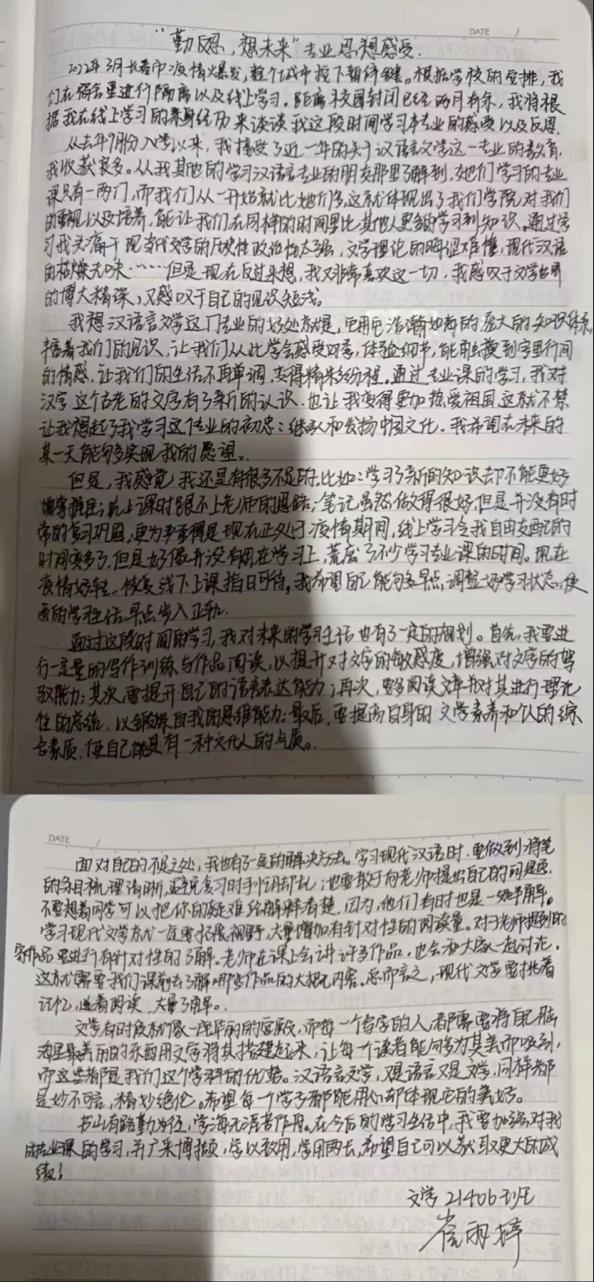 DATE /
"勤反思,想未来"专业思想感受.
2022年3月长春市疫情爆发,整个城市按下暂停键。根据学校的安排,我
们在宿舍里进行隔离以及线上学习.距离校园封闭已经两月有余,我将根
据我在线上学习的亲身经历来谈谈我这段时间学习本专业的感受以及反思.
从去年9月份入学以来,我接受了近一年的关于汉语言文学这一专业的教育,
我收获良多。从我其他的学习汉语言专业的朋友那里了解到,她们学习的专业
课只有一两门,而我们从一开始就比她们多,这就体现出了我们学院对我们
的重视以及培养,能让我们在同样的时间里比其他人更多的学习到知识。通过学
习我头痛于现当代文学的历史性政治性太强,文学理论的晦涩难懂,现代汉语
的枯燥无味……但是现在反过来想,我又非常喜欢这一切,我感叹于文学世界
的博大精深,又感叹于自己的见识短浅。
我想汉语言文学这门专业的好处就是,它用它浩瀚如海的庞大的知识体系
丰富着我们的见识,让我们从此学会感受四季,体验细节,能触摸到字里行间
的情感,让我们的生活不再单调,变得精彩纷程。通过专业课的学习,我对
汉字这个古老的文字有了新的认识.也让我变得更加热爱祖国这就不禁
让我想起了我学习这个专业的初忠:继承和发扬中国文化.我希望在未来的
某一天能够多实现我的愿望.
但是,我感觉我还是有很多不足的,比如:学习了新的知识却不能更好
上课时跟不上老师的思路;笔记虽然做得很好,但是并没有时
常的复习巩固,更为严重得是现在正处于疫情期间,线上学习令我自由支配的
时间变多了,但是好像并没有用在学习上,荒废了不少学习专业课的时间.现在
疫情好转,恢复线下上课指日可待,我希望自己能够早点调整好学习状态,使
我的学习生活早点步入正轨.
通过这段时间的学习,我对未来的学习生活也有了一定的规划。首先,我要进
行一定量的写作训练与作品阅读,以提升对文字的敏感度,增强对文字的驾
驭能力;其次,要提升自己的语言表达能力;再次,要多阅读文章并对其进行理论
性的总结,以锻炼自我的思维能力;最后,要提高自身的文学素养和个人的综
合素质,使自己能具有一种文化人的气质。
DATE /
面对自己的不足之处,我也有了一定的解决方法。学习现代汉语时,要做到将笔
的条目梳理清晰,避免复习时手忙脚乱;也要敢于向老师提出自己的问题,
不要想着同学可以把你的疑难给解释清楚,因为,他们有时也是一知半解。
学习现代文学就一定要拓展视野,大量增加有针对性的阅读量.对于老师提到的
作品要进行有针对性的了解.老师在课上会讲许多作品,也会和大家一起讨论,
这就需要我们课前去了解哪些作品的大概内容.总而言之,现代文学要抓着
记忆,追着阅读,大量了解。
文学有时候就像一座华丽的宫殿,而每一个写字的人,都需要将自己脑
海里最美丽的东西用文字将其搭建起来,让每一个读者能够为其美而吸引,
而这些都是我们这个学科的优势。汉语言文学,又是语言又是文学,同样都
是妙不可言,精妙绝伦。希望每一个学子都能用心却体现它的美好。
书山有路勤为径,学海无涯苦作舟.在今后的学习生活中,我要加强对我
的专业课的学习,并广采博撷,学以致用,学用两长,希望自己可以获取更大的成
绩!
文学21406班
崔雨婷